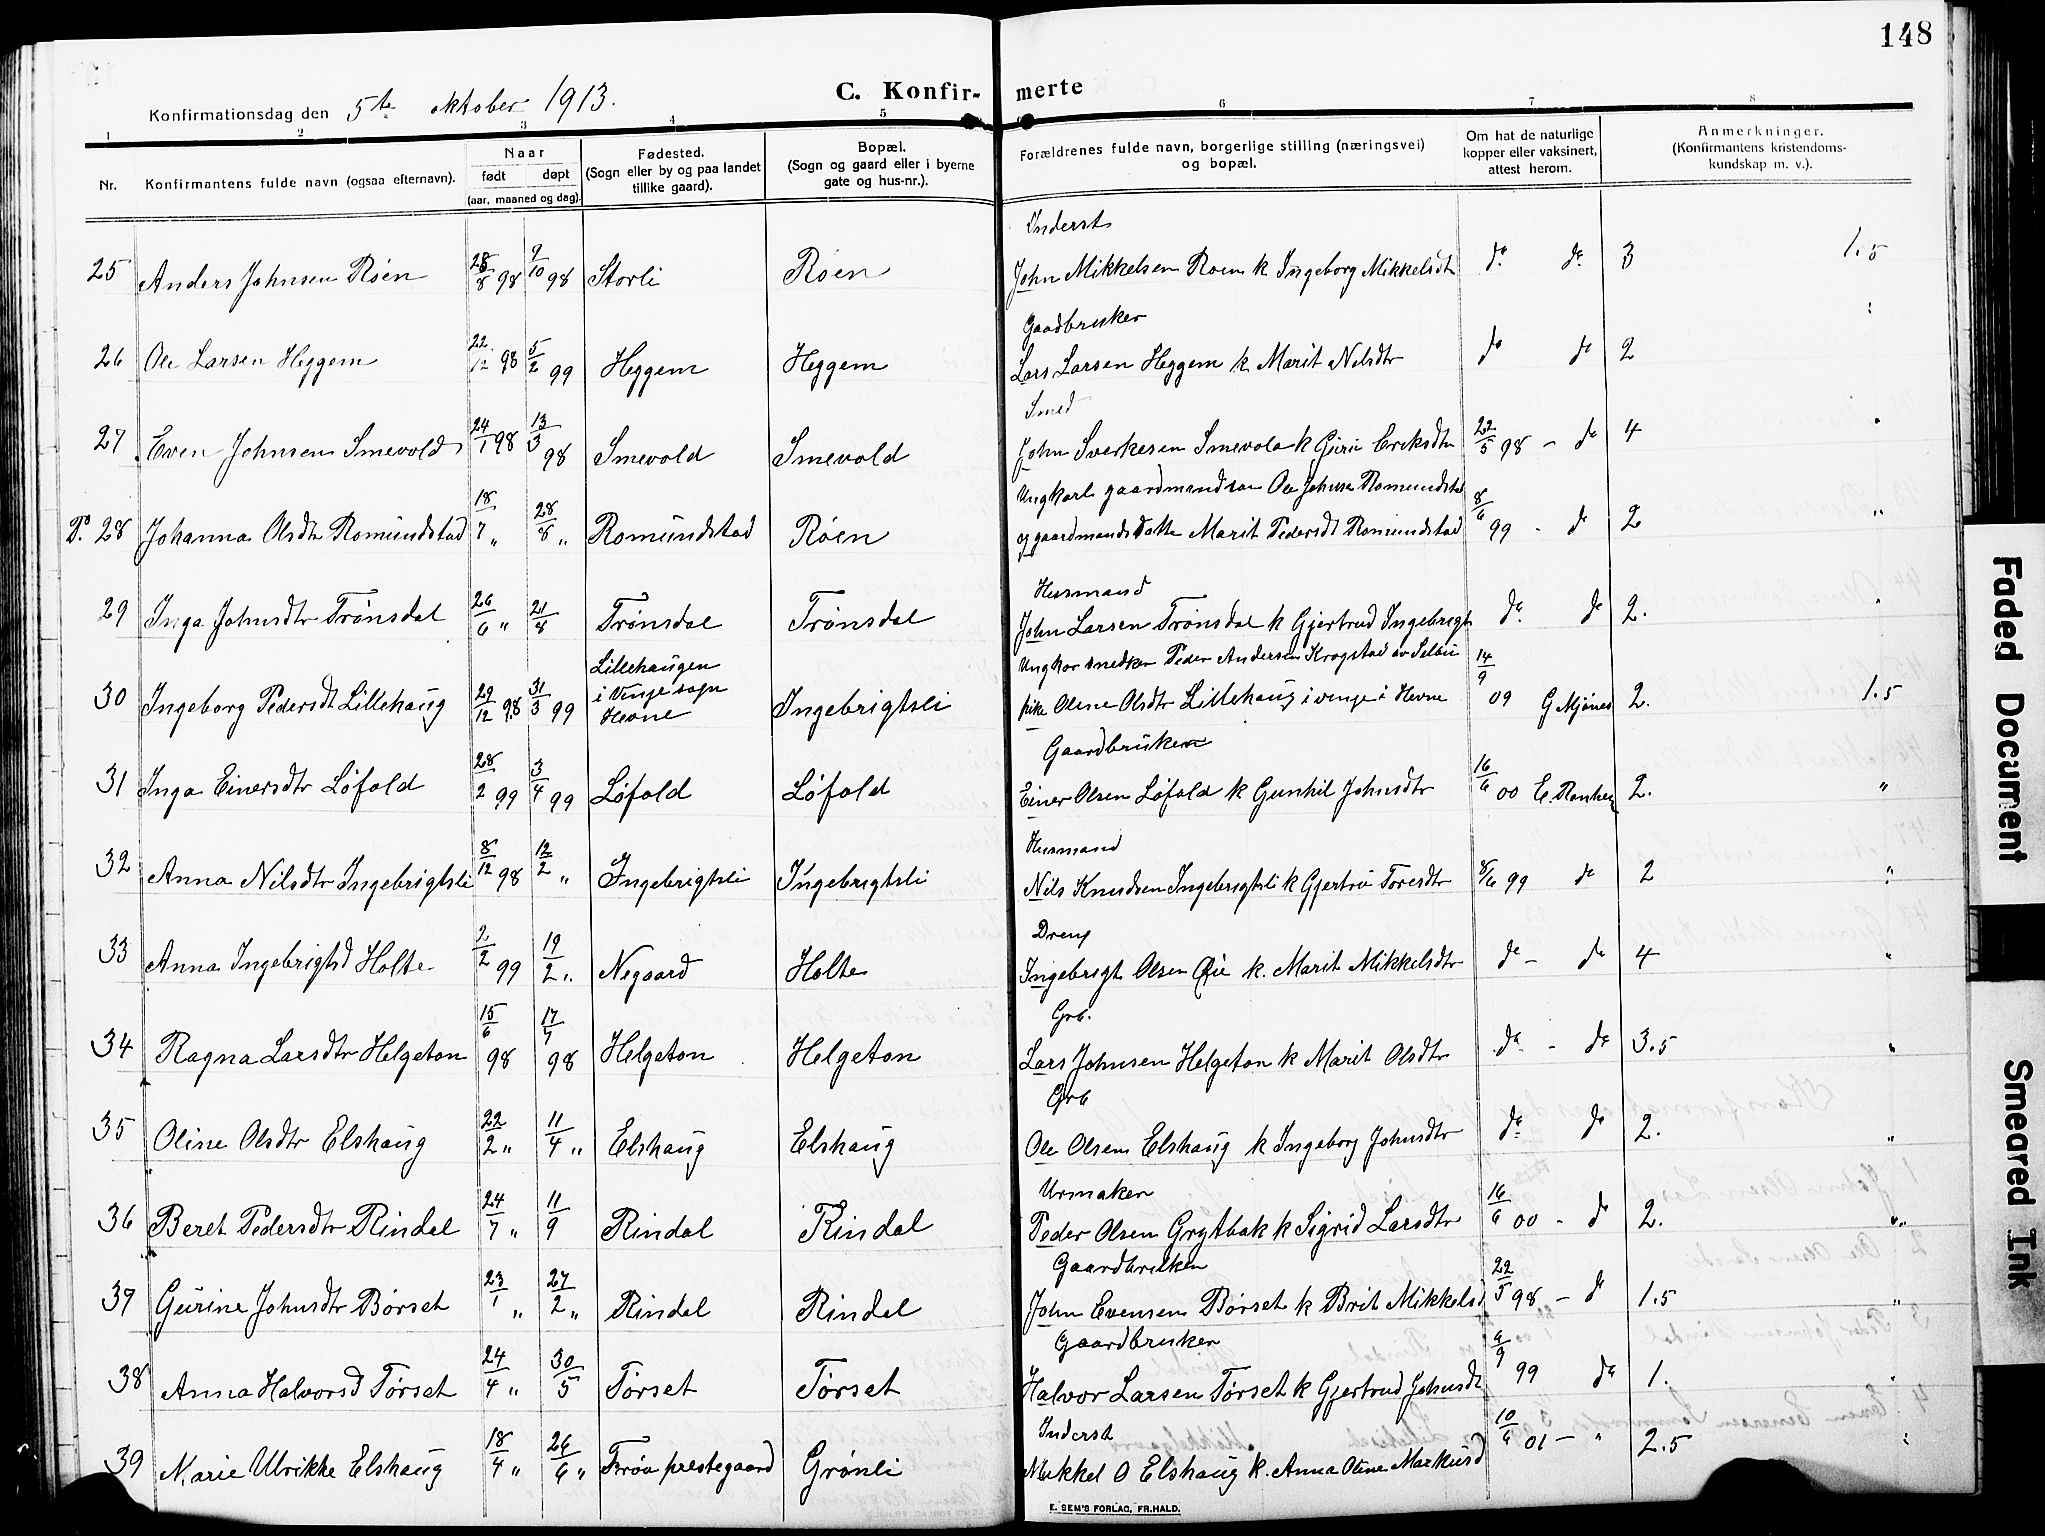 148
Konfirmationsdag den 5te oktober 1913.
C. Konfir- merte
1 2 3 4 5 6 7 8
Nr.
Konfirmantens fulde navn (ogsaa efternavn).
Naar
født døpt
(aar, maaned og dag).
Fødested.
(Sogn eller by og paa landet
tillike gaard).
Bopæl.
(Sogn og gaard eller i byerne
gate og hus-nr.).
Forældrenes fulde navn, borgerlige stilling (næringsvei)
og bopæl.
Om hat de naturlige
kopper eller vaksinert,
attest herom.
Anmerkninger.
(Konfirmantens kristendoms-
kundskap m. v.).
Inderst
25 Anders Johnsen Røen 28/8 98 9/10 98 Storli Røen John Mikkelsen Roen k Ingeborg Mikkelsdtr do. do. 3 1.5
Gaadbruker
26 Ole Larsen Heggem 22/12 98 5/2 99 Heggem Heggem Lars Larsen Heggem k Marit Nilsdtr do do 2 "
Smed
27 Even Johnsen Smevold 24/1 98 13/3 98 Smevold Smevold John Sverkesen Smevold k Guri Eriksdtr 22/5 98 - do 4 "
Ungkarl gaardmandsøn Ole Johnsen Romundstad
28 Johanna Olsdtr Romundstad 18/7 " 28/8 " Romundstad Røen og gaardmandsdatter Marit Pedersdt Romundstad 8/6 99 - do 2 "
Husmand
29 Inga Johnsdtr Trønsdal 26/6 " 21/8 Trønsdal Trønsdal John Larsen Trønsdal k Gjertrud Ingebrigt do. do 2. "
Lillehaugen
i Vinje sogn
Hevne
Ungkar snedker Peder Andersen Krogstad av Selbu
30 Ingeborg Pedersdt Lillehaug 29/12 98 31/3 99 Ingebrigtsli pike Oline Olsdtr Lillehaug i vinje i Hevne 14/9 09 G Mjønes 2. 1.5
Gaardbruker
31 Inga Einersdtr Løfald 28/2 99 3/4 99 Løfald Løfald Einer Olsen Løfald k Gunhil Johnsdtr 16/6 00 2. "
Husmand
32 Anna Nilsdtr Ingebrigtsli 8/12 98 12/2 " Ingebrigtsli Ingebrigtsli Nils Knudsen Ingebrigtsli k Gjertru Toresdtr 8/6 99 do 2 "
Dreng
33 Anna Ingebrigtsd Holte 2/2 99 19/2 " Negaard Holte Ingebrigt Olsen Øie k. Marit Mikkelsdtr do - do 4 "
Grb.
34 Ragna Larsdtr Helgeton 15/6 98 17/7 98 Helgeton Helgeton Lars Johnsen Helgeton k Marit Olsdtr do - do 3.5 "
Grb
35 Oline Olsdtr Elshaug 22/2 " 11/4 " Elshaug Elshaug Ole Olsen Elshaug k Ingeborg Johnsdtr do. do 2. "
Urmaker
36 Beret Pedersdtr Rindal 24/7 " 11/9 Rindal Rindal Peder Olsen Grytbak k Sigrid Larsdtr 16/6 00 - do 2. "
Gaardbruker
37 Gurine Johnsdtr Børset 23/1 " 27/2 " Rindal Rindal John Evensen Børset k Brit Mikkelsd 22/5 98 - do 1.5 "
Gaardbruker
38 Anna Halvorsd Tørset 24/4 " 30/5 Tørset Tørset Halvor Larsen Tørset k Gjertrud Johnsdt 9/9 99 do 1. "
Inderst
39 Marie Ulrikke Elshaug 18/4 " 26/6 " Frøia prestegaard Grønli Mikkel O Elshaug k. Anna Oline Markusd 10/6 01 - " 2.5 "
E. SEM'S FORLAG, FR.HALD.
Faded Document
Smeared Ink